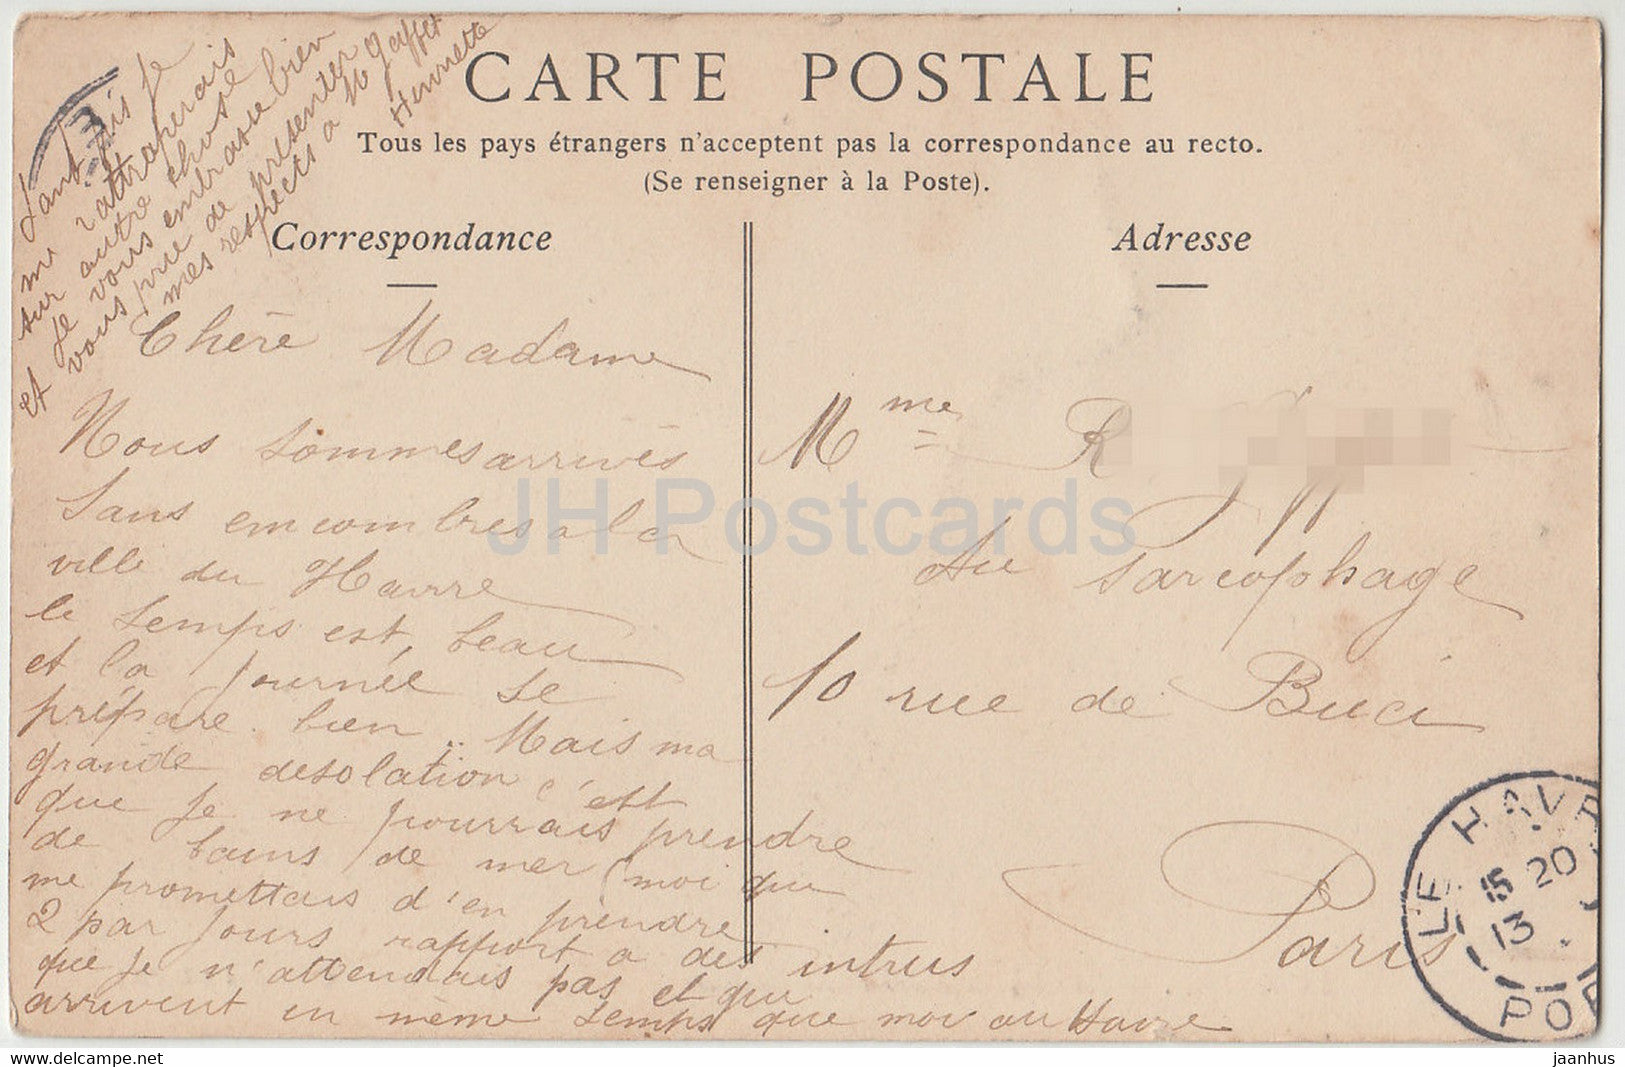 CARTE POSTALE
Tous les pays étrangers n'acceptent pas la correspondance au recto.
(Se renseigner à la Poste).
Correspondance
Adresse
Chère Madame
Nous sommes arrivés
sans emcombres a la
ville du Havre
le temps est beau
et la journée se
prépare bien. Mais ma
grande desolation c'est
que je ne pourrais prendre
de bains de mer (moi qui
me promettais d'en prendre
2 par jours rapport a des intrus
que je n'attendais pas et qui
arrivent en même temps que moi au Havre
Tant pis je
me rattraperais
sur autre chose
Je vous embrasse bien
et vous prie de presenter
mes respects a M Gaffet
Henriette
Mme R
Au Sarcophage
10 rue de Buci
Paris
LE HAVR
15 20
13
POR
JH Postcards
www.jhpostcards.com
jaanhus